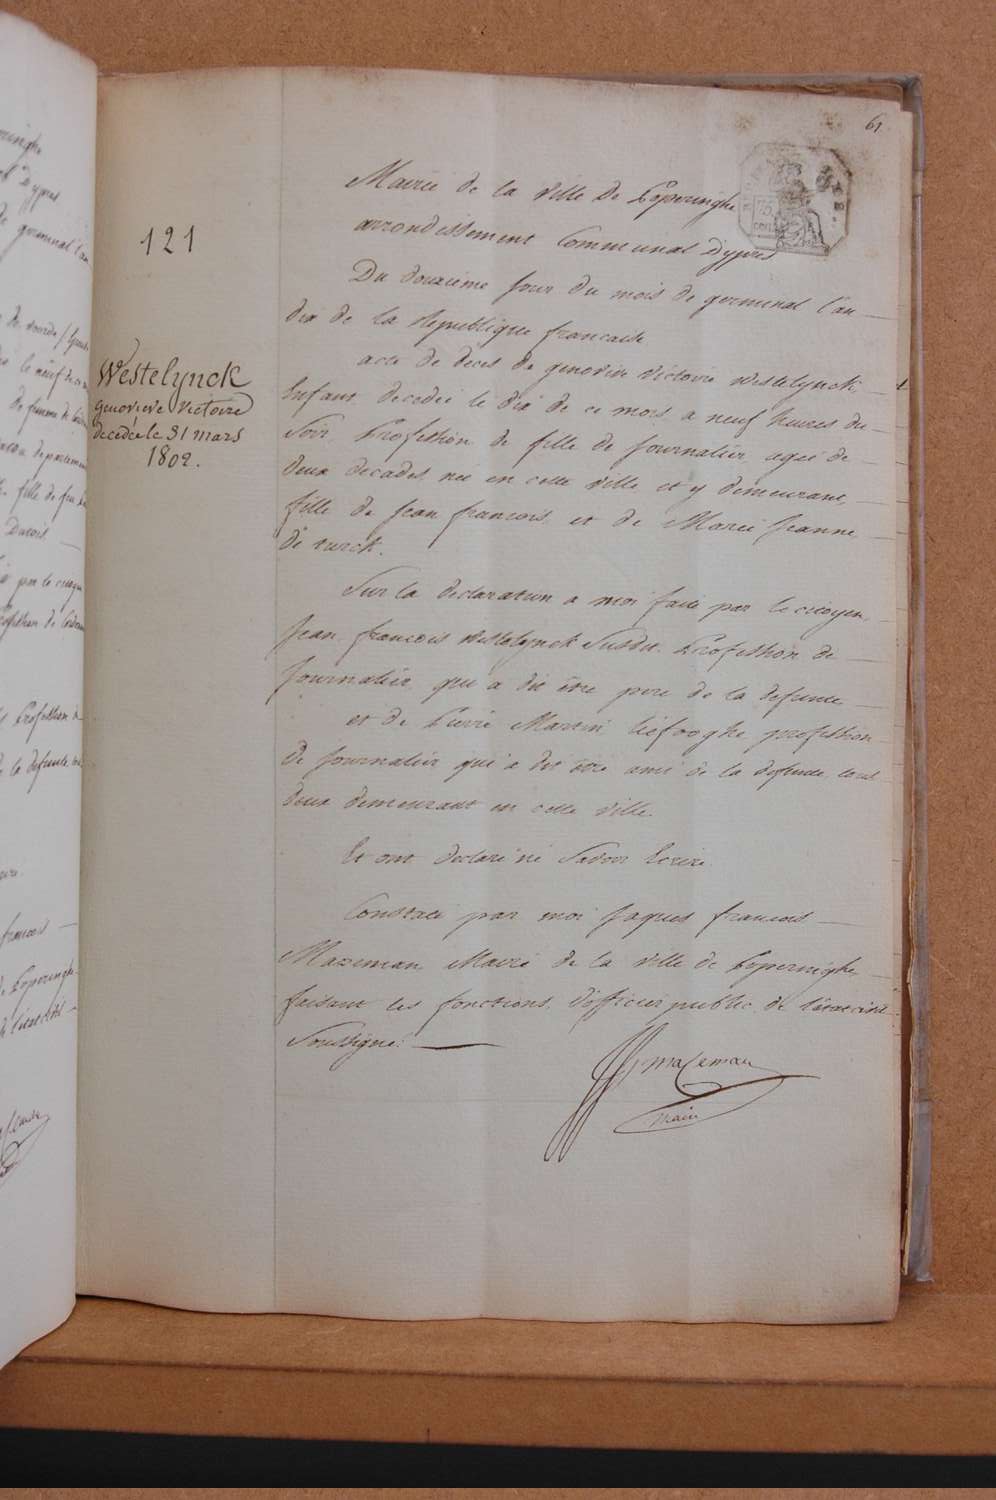 61
Mairie de la ville de Poperinghe
arrondissement Communal D'ypres
121
Du douzieme jour du mois de germinal l'an
dix de la Republique francaise
acte de deces de genovive victoire westelynck
Westelynck
genovieve victoire
decedée le 31 mars
1802.
Enfant, decedée le dix de ce mois a neuf heures du
Soir, Profession de fille de Journalier, agée de
deux decades, née en cette ville et y demeurant,
fille de Jean francois, et de Marie Jeanne
de turck.
Sur la declaration a moi faite par le citoyen
Jean francois westelynck Susdit, Profession de
Journalier, qui a dit être pere de la defunte
et de Pierre Martin liefooghe profession
de Journalier qui a dit être ami de la defunte, tous
deux demeurant en cette ville.
Et ont declaré ne Savoir Ecrire
Constaté par moi Jaques francois
Mazeman Maire de la ville de Poperinghe
faisant les fonctions d'officier public de l'état civil
Soussigné:
mazeman
maire